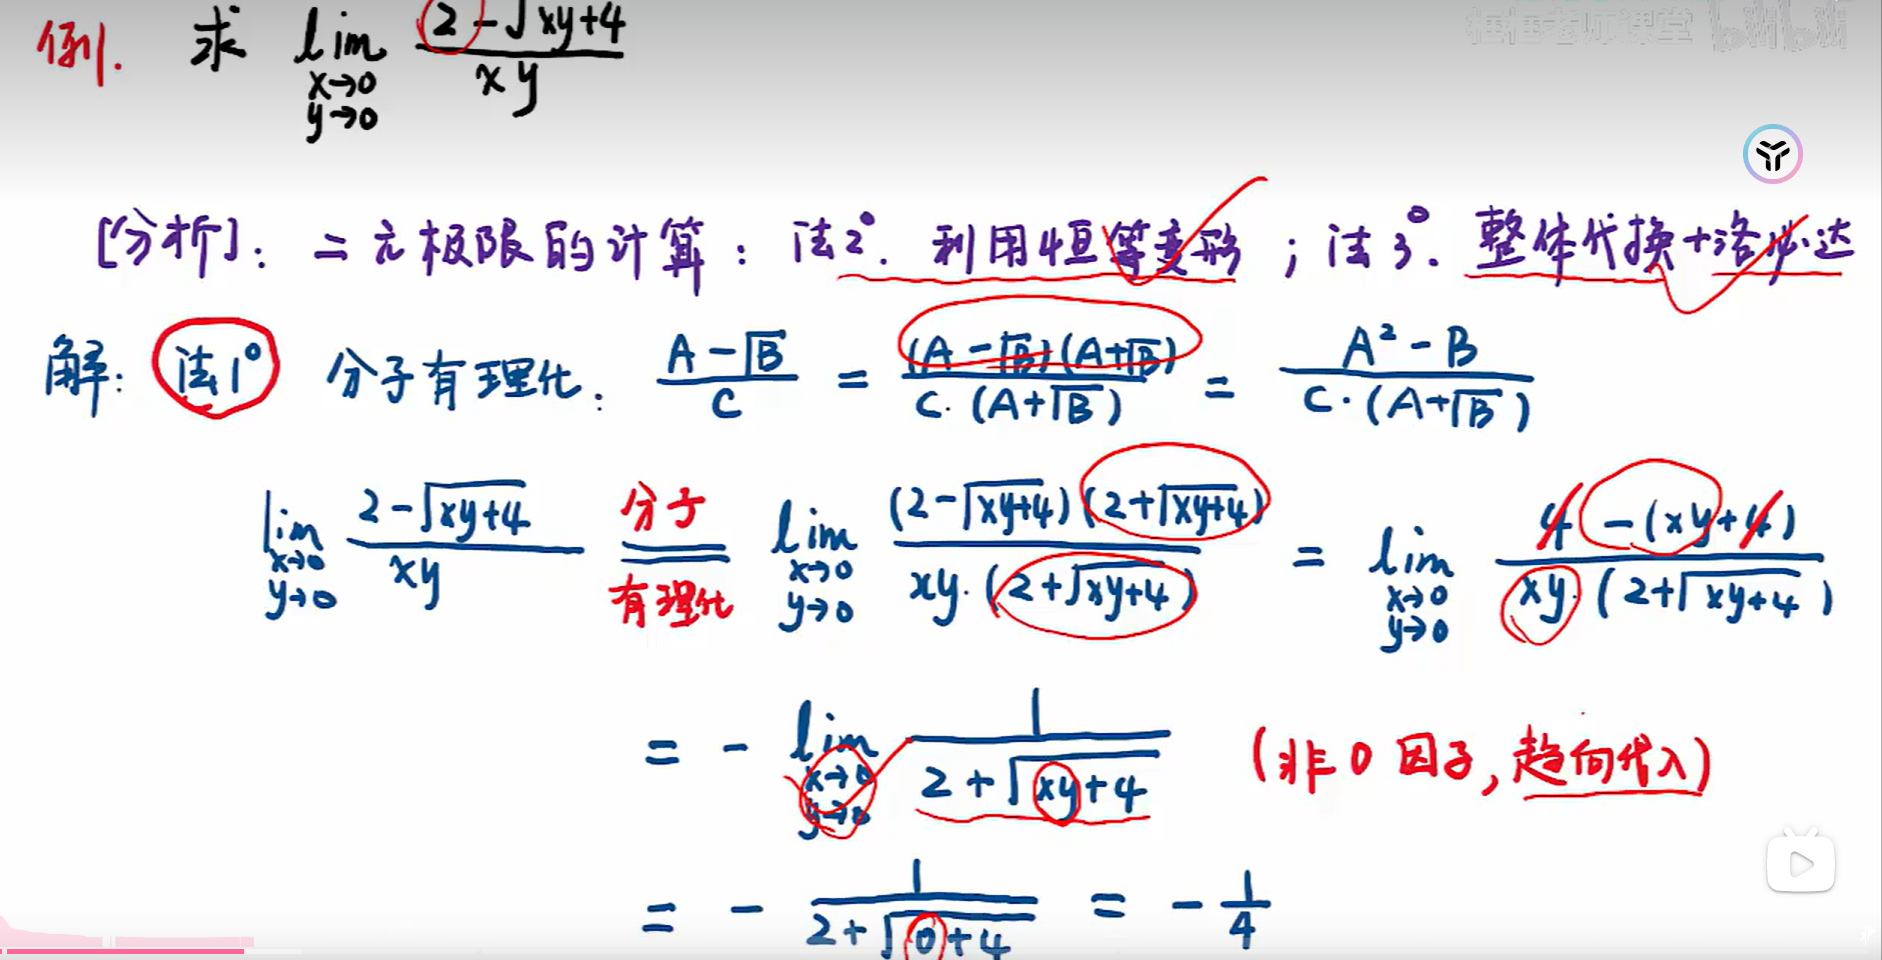 框框老师课堂 bilibili
例. 求 lim x→0 y→0 (2-√(xy+4))/(xy)
[分析]: 二元极限的计算: 法2°. 利用恒等变形; 法3°. 整体代换+洛必达
解: 法1° 分子有理化: (A-√B)/C = ((A-√B)(A+√B))/(C·(A+√B)) = (A²-B)/(C·(A+√B))
lim x→0 y→0 (2-√(xy+4))/(xy) 分子有理化 = lim x→0 y→0 ((2-√(xy+4))(2+√(xy+4)))/(xy·(2+√(xy+4))) = lim x→0 y→0 (4-(xy+4))/(xy·(2+√(xy+4)))
= - lim x→0 y→0 1/(2+√(xy+4)) (非0因子, 趋向代入)
= - 1/(2+√(0+4)) = - 1/4